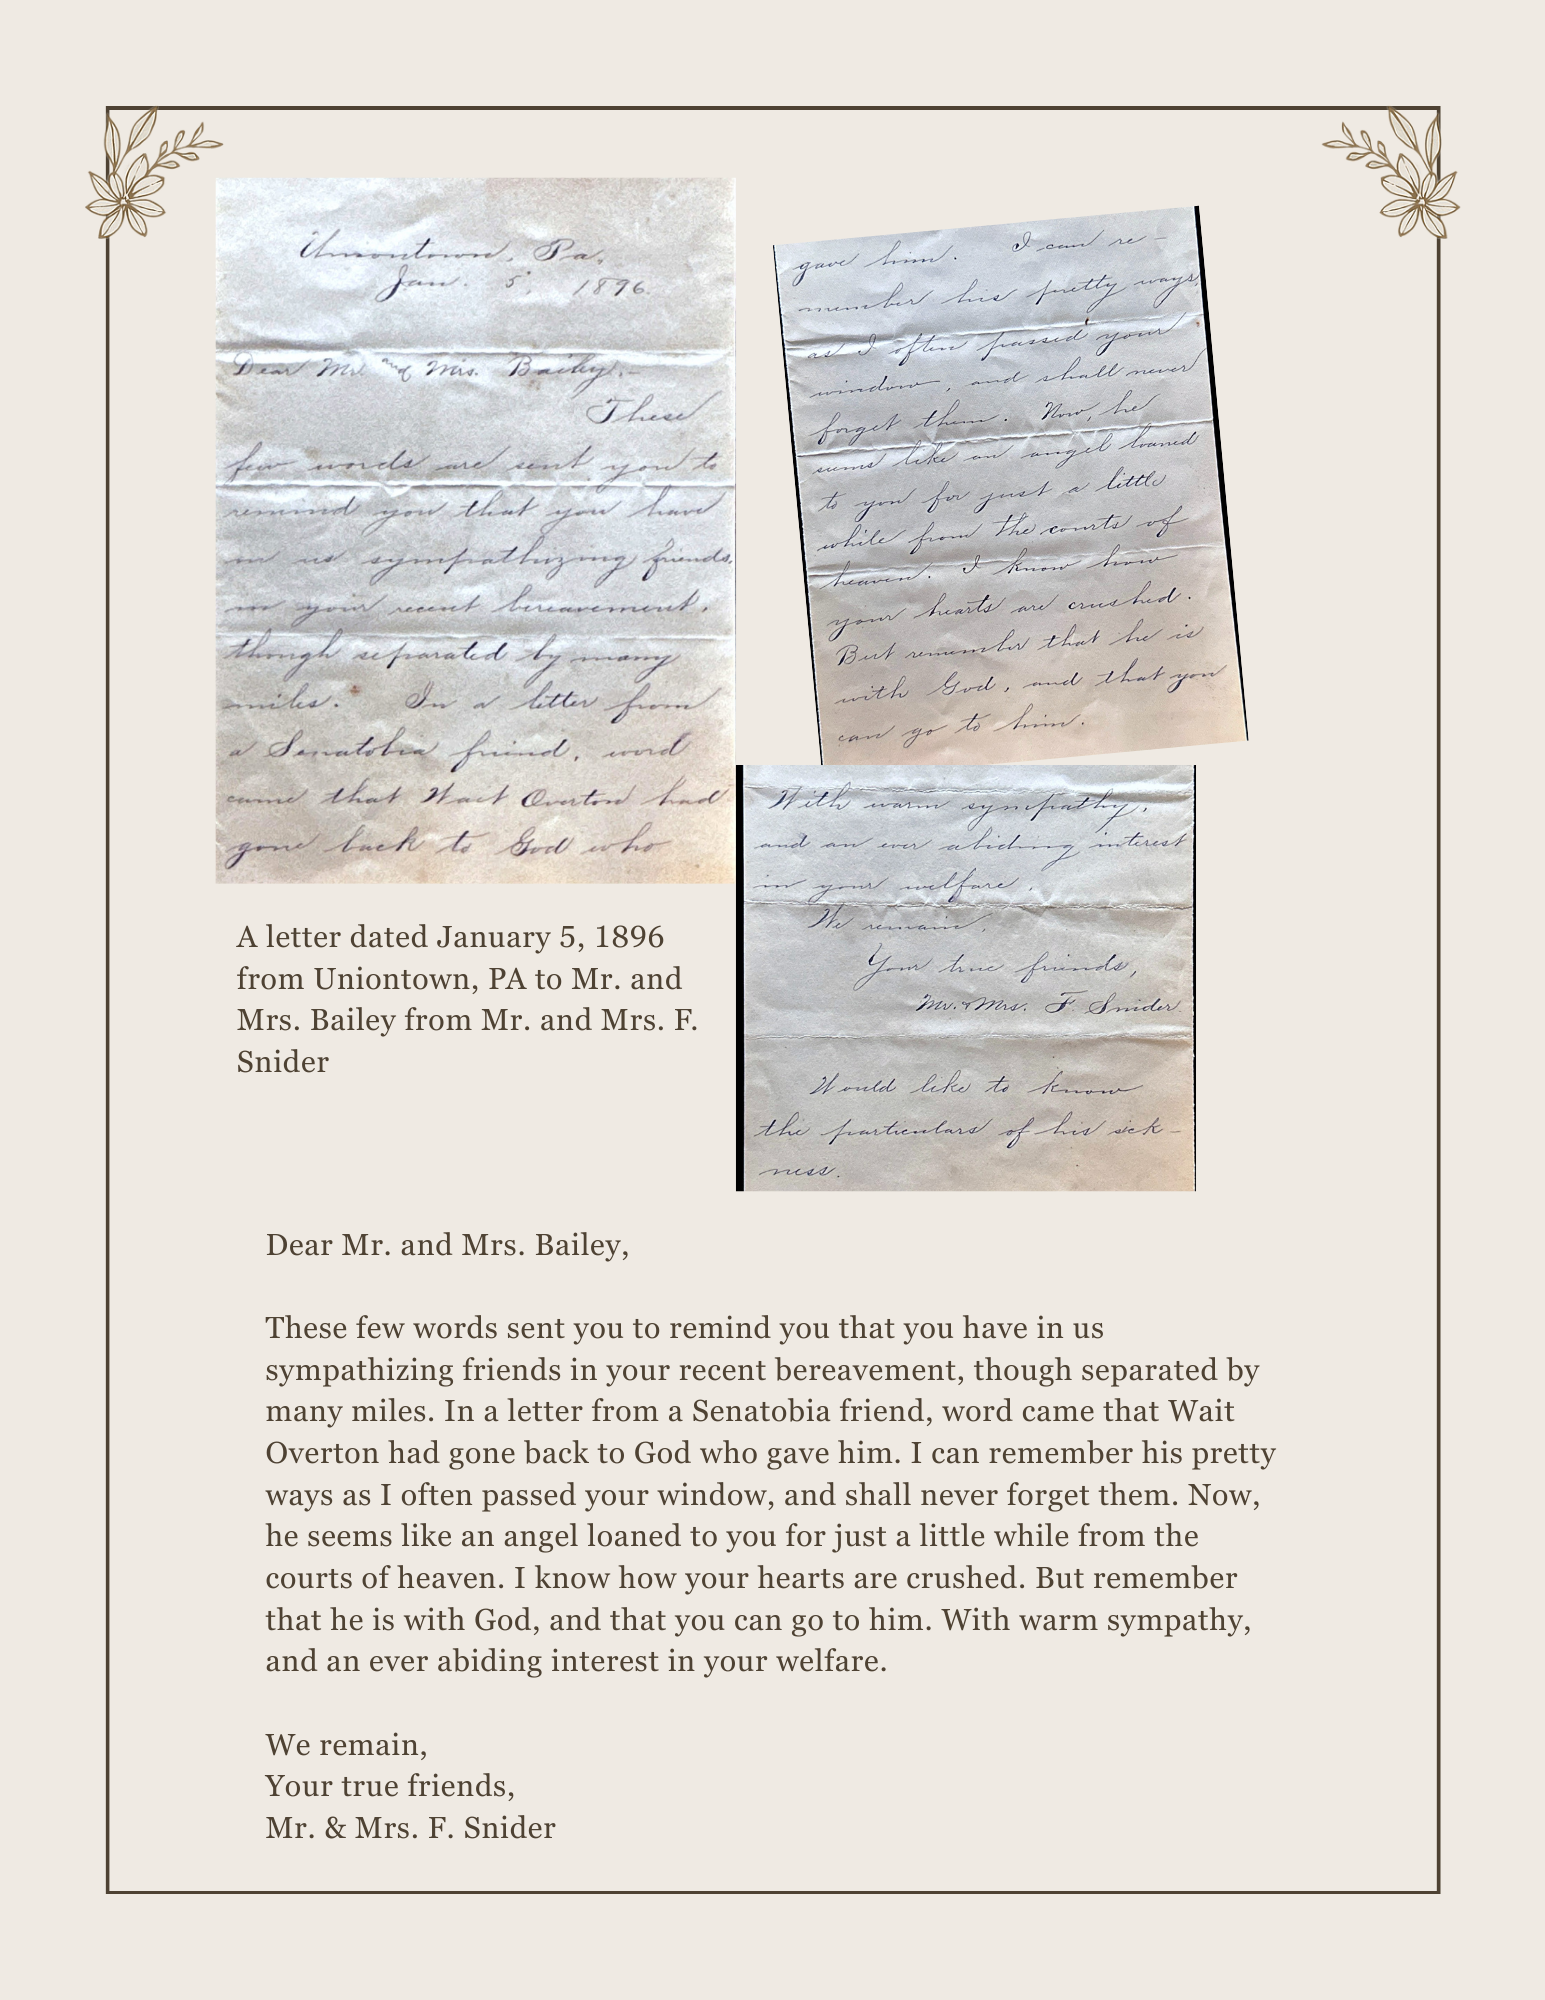 Uniontown, Pa.
Jan. 5, 1896.
Dear Mr. and Mrs. Bailey,-
These
few words are sent you to
remind you that you have
in us sympathizing friends,
in your recent bereavement,
though separated by many
miles. In a letter from
a Senatobia friend, word
came that Wait Overton had
gone back to God who
gave him. I can re-
member his pretty ways,
as I often passed your
window, and shall never
forget them. Now, he
seems like an angel loaned
to you for just a little
while from the courts of
heaven. I know how
your hearts are crushed.
But remember that he is
with God, and that you
can go to him.
With warm sympathy,
and an ever abiding interest
in your welfare,
We remain,
Your true friends,
Mr. & Mrs. F. Snider.
Would like to know
the particulars of his sick-
ness.
A letter dated January 5, 1896
from Uniontown, PA to Mr. and
Mrs. Bailey from Mr. and Mrs. F.
Snider
Dear Mr. and Mrs. Bailey,
These few words sent you to remind you that you have in us
sympathizing friends in your recent bereavement, though separated by
many miles. In a letter from a Senatobia friend, word came that Wait
Overton had gone back to God who gave him. I can remember his pretty
ways as I often passed your window, and shall never forget them. Now,
he seems like an angel loaned to you for just a little while from the
courts of heaven. I know how your hearts are crushed. But remember
that he is with God, and that you can go to him. With warm sympathy,
and an ever abiding interest in your welfare.
We remain,
Your true friends,
Mr. & Mrs. F. Snider